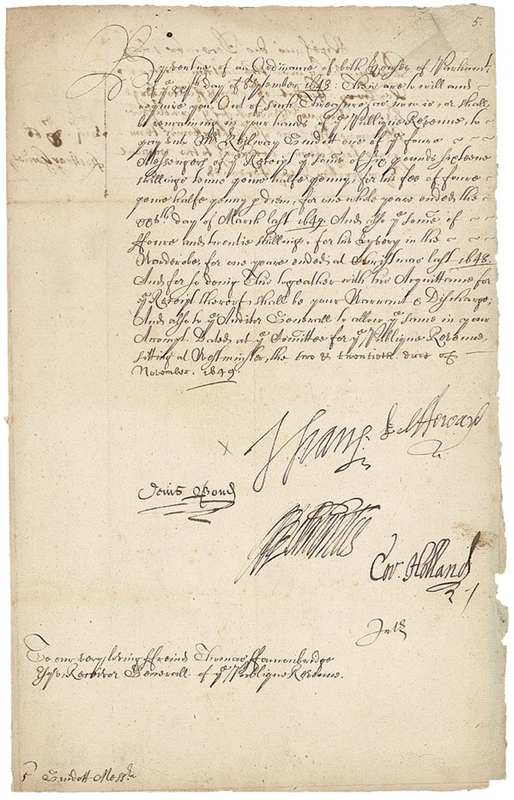 5.
By vertue of an Ordinance of both houses of Parliamt
of ye day of September 1643. These are to will and
require you, Out of such Treasure, as now is, or shall
be remaining in your hands of ye Publique Revenue, to
pay unto Mr one of ye foure
Messengers of ye Receipt ye some of six pounds sixteene
shillings penny halfe penny, for his fee of foure
pence halfe penny p diem, for one whole yeare ended the
xxvth day of March last 1649. And also ye some of
ffoure and twentie shillings, for his Lyvery in the
Wardrobe, for one yeare ended at Christmas last 1648.
And for so doeing This togeather with his Acquittance for
ye Receipt thereof shall be your Warrant & Discharge;
And also to ye Auditor Generall to allow ye same in your
Accompt. Dated at ye Comittee for ye Publique Revenue,
sitting at Westminster, the two & twentieth daie of
November. 1649.
H Edw Howard
Denis Bond
Cor: Holland
To our very loving ffreind Thomas ffauconbridge
Esqr Receivor Generall of ye Publique Revenue.
5 Messr